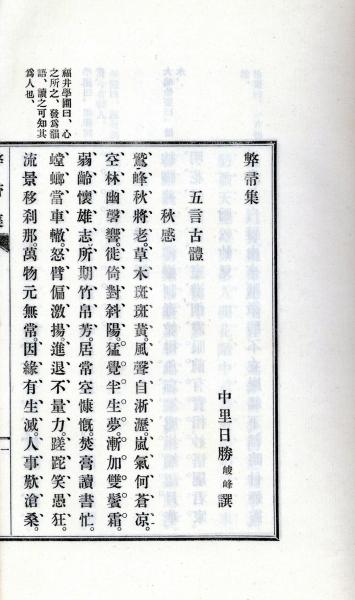 弊帚集
中里日勝峻峰撰
五言古體
秋感
鷲峰秋將老。草木斑斑黃。風聲自淅瀝。嵐氣何蒼凉。
空林幽磬響。徙倚對斜陽。猛覺半生夢。漸加雙鬢霜。
弱齡懷雄志。所期竹帛芳。居常空慷慨。焚膏讀書忙。
螳螂當車轍。怒臂偏激揚。進退不量力。蹉跎笑愚狂。
流景移刹那。萬物元無常。因緣有生滅。人事歎滄桑。
福井學圃曰、心
之所之、發爲韻
語、讀之可知其
爲人也、
弊帚集
一